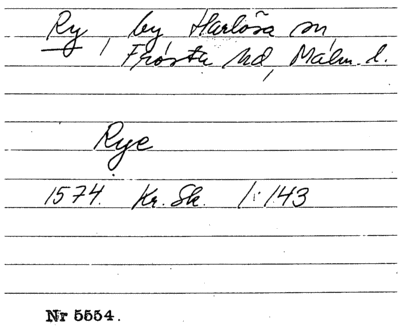 Ry, by Harlösa sn,
Frosta hd, Malm. l.
Rye
1574. Kr. Sk. 1:143
Nr 5554.